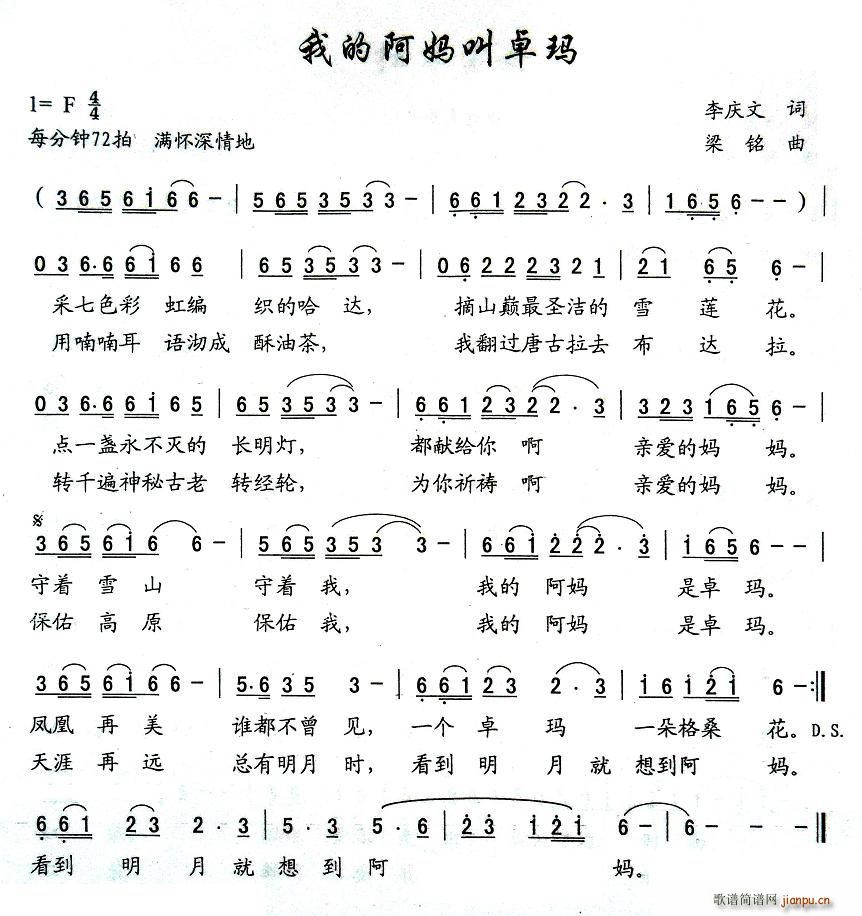 我的阿妈叫卓玛
1= F 4/4
李庆文 词
每分钟72拍 满怀深情地
梁 铭 曲
( 3 6 5 6 i 6 6 - | 5 6 5 3 5 3 3 - | 6 6 1 2 3 2 2 · 3 | 1 6 5 6 - - ) |
0 3 6 6 · 6 6 i 6 6 | 6 5 3 5 3 3 - | 0 6 2 2 2 2 3 2 1 | 2 1 6 5 6 - |
采七色彩 虹编 织的哈 达, 摘山巅最圣洁的 雪 莲 花。
用喃喃耳 语沏成 酥油茶, 我翻过唐古拉去 布 达 拉。
0 3 6 6 · 6 6 i 6 5 | 6 5 3 5 3 3 - | 6 6 1 2 3 2 2 · 3 | 3 2 3 1 6 5 6 - |
点一盏永不灭的 长明灯, 都献给你 啊 亲爱的妈 妈。
转千遍神秘古老 转经轮, 为你祈祷 啊 亲爱的妈 妈。
3 6 5 6 i 6 6 - | 5 6 5 3 5 3 3 - | 6 6 i 2 2 2 · 3 | i 6 5 6 - - |
守着 雪 山 守着 我, 我的 阿妈 是卓 玛。
保佑 高 原 保佑 我, 我的 阿妈 是卓 玛。
3 6 5 6 i 6 6 - | 5 · 6 3 5 3 - | 6 6 1 2 3 2 · 3 | i 6 i 2 i 6 - :||
凤凰 再 美 谁都不曾 见, 一个 卓 玛 一朵格桑 花。D.S.
天涯 再 远 总有明月 时, 看到 明 月 就 想到阿 妈。
6 6 1 2 3 2 · 3 | 5 · 3 5 · 6 | 2 3 i 2 i 6 - | 6 - - ||
看到 明 月 就 想 到 阿 妈。
歌谱简谱网
jianpu.cn